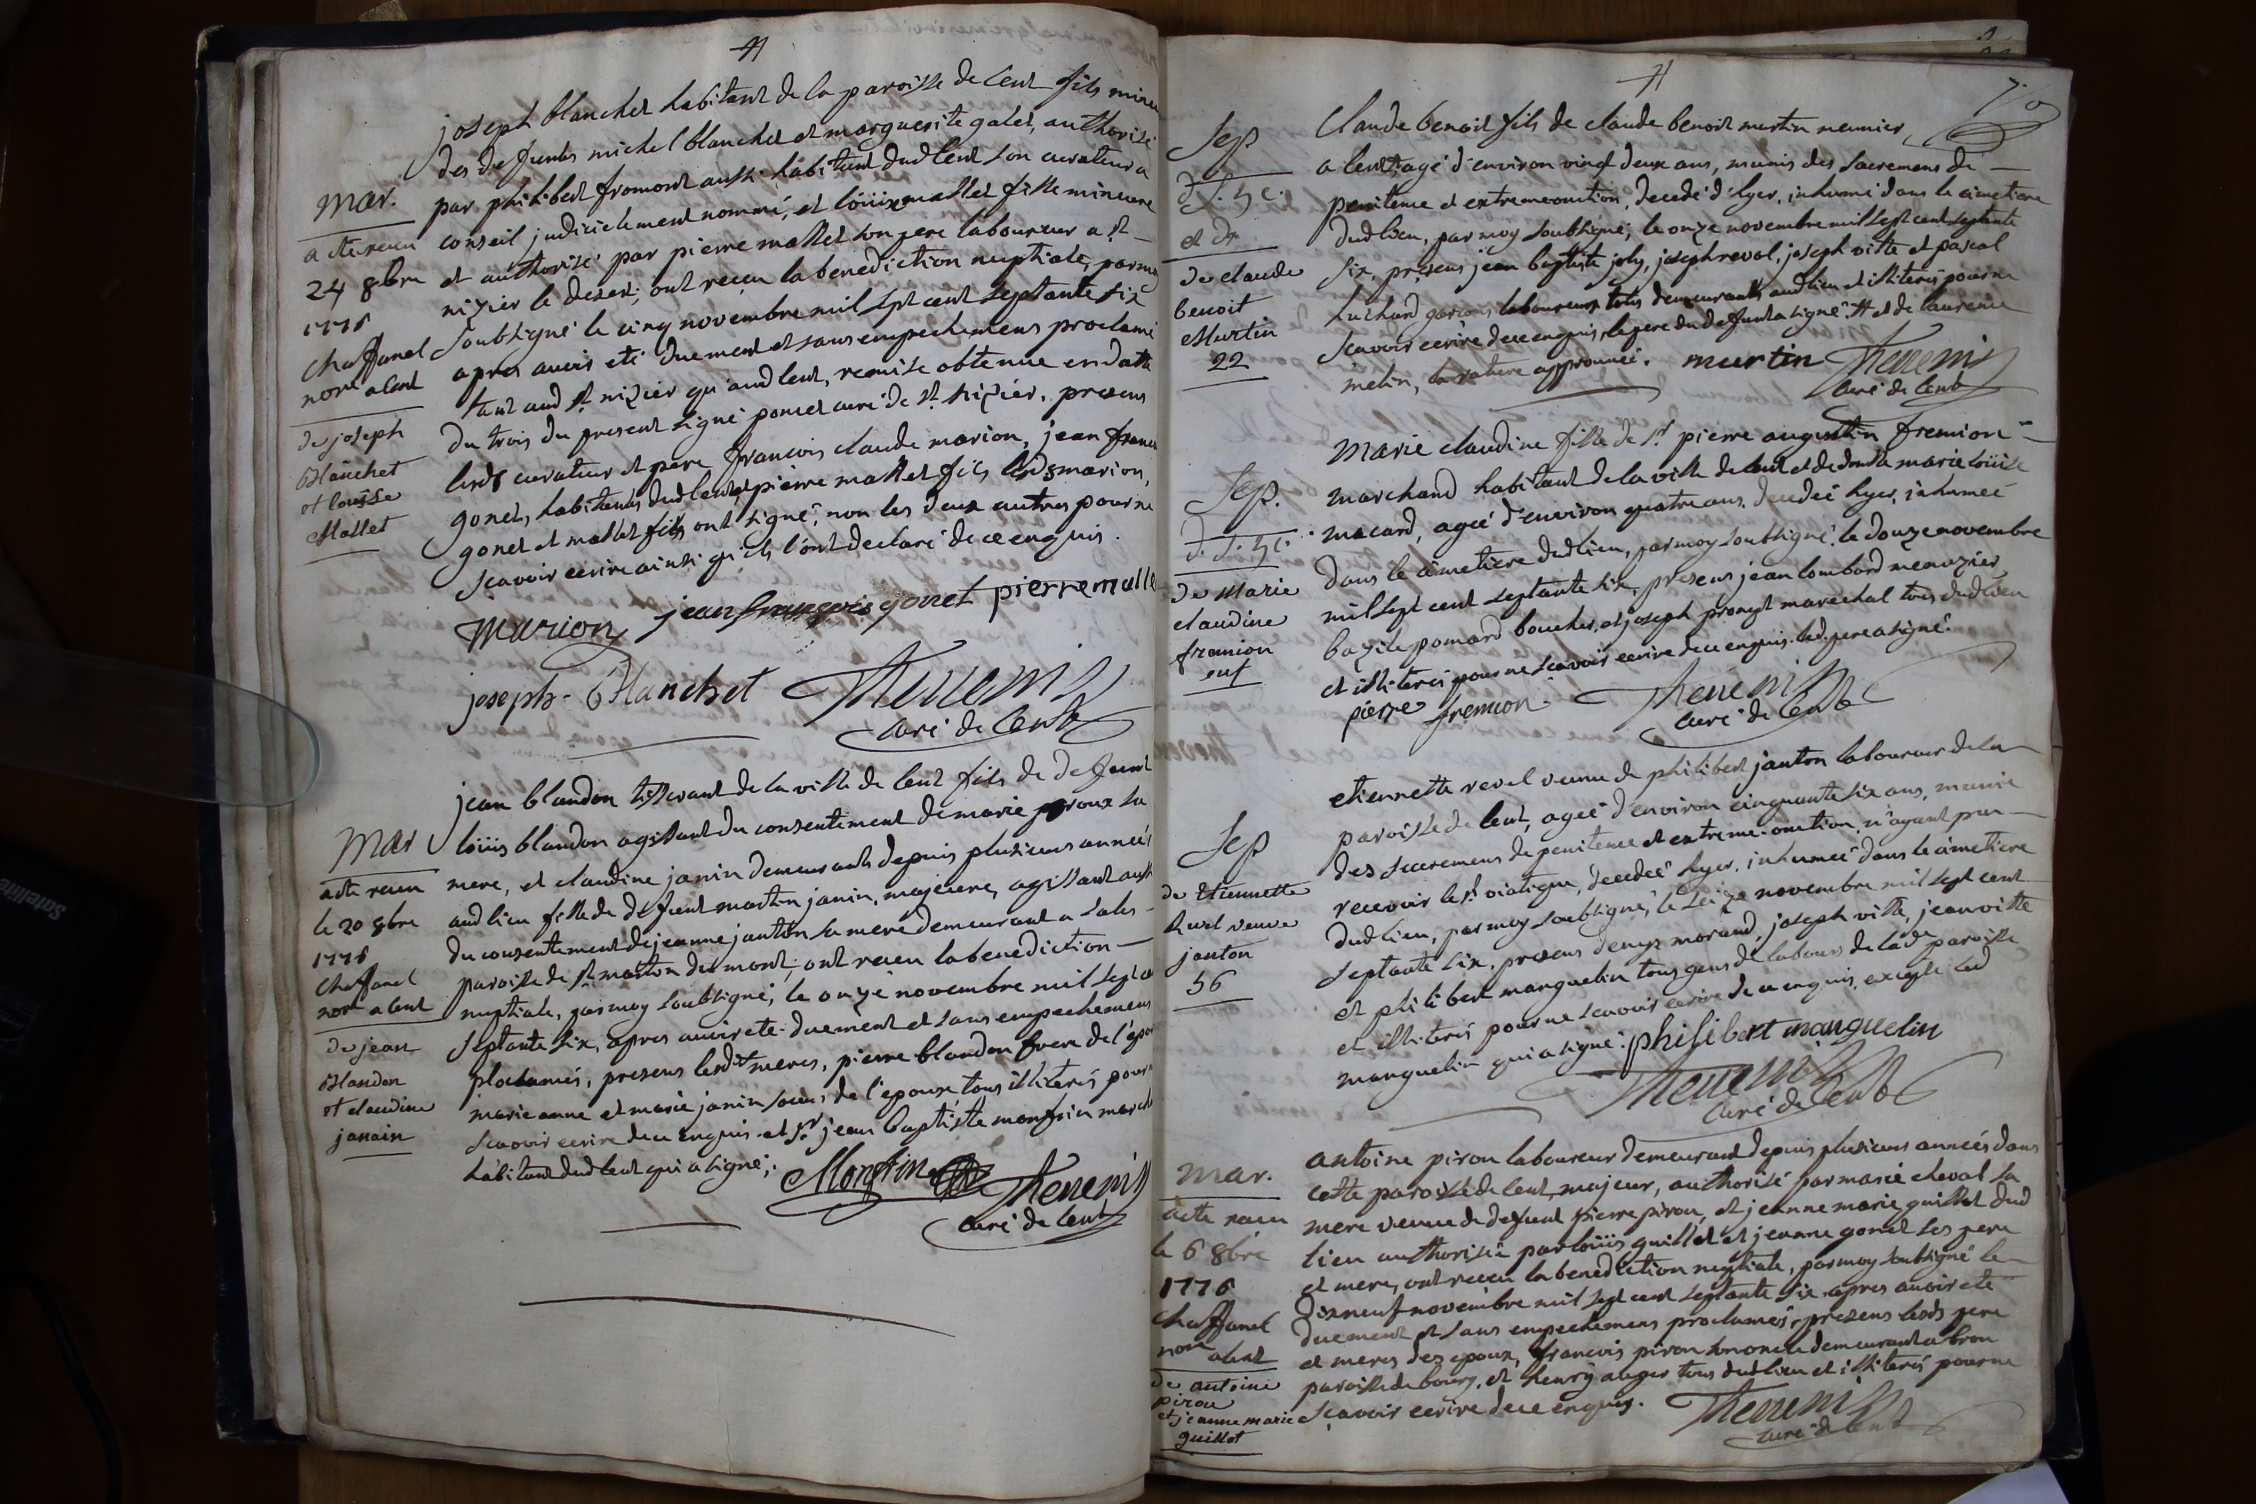 joseph blanchet habitant de la paroisse de lent fils mineur
des defunts michel blanchet et marguerite galet, authorisé
par philibert fromont aussi habitant dud lent son curateur a
conseil judicielement nommé, et loüise mallet fille mineure
et authorisé par pierre mallet son pere laboureur a st
nizier le desert, ont reçu la benediction nuptiale, par moy
soubsigné le cinq novembre mil sept cent septante six
apres avoir eté duement et sans empechemens proclamé
tant aud st nizier qu'aud lent, remise obtenue en datte
du trois du present signé poncet curé de st nizier. presens
lesds curateur et pere françois claude marion, jean françois
gonet, habitants dud lent, et pierre mallet fils lesds marion,
gonet et mallet fils ont signé, non les deux autres pour ne
sçavoir ecrire ainsi qu'ils l'ont declaré de ce enquis.
marion jean françois gonet pierre malle
joseph blanchet Thevenin
curé de lent
mar.
acte reçu
24 8bre
1776
Chaffanel
nore a lent
de joseph
Blanchet
et louise
Mallet
jean blandon tisserant de la ville de lent fils de defunt
loüis blandon agissant du consentement de marie peroux sa
mere, et claudine janin demeurants depuis plusieurs années
aud lieu fille de defunt martin janin, majeure, agissant aussi
du consentement de jeanne janton sa mere demeurant a sales
paroisse de st martin du mont, ont reçu la benediction
nuptiale, par moy soubsigné, le onze novembre mil sept cent
septante six, apres avoir eté duement et sans empechemens
proclamés, presens lesdt meres, pierre blandon frere de l'epoux
marie anne et marie janin soeurs de l'epouse tous illiterés pour ne
sçavoir ecrire de ce enquis et sr jean baptiste monfrin march
habitant dud lent qui a signé.
Monfrin Thevenin
curé de lent
mar
acte reçu
le 20 8bre
1776
Chaffanel
nore a lent
de jean
Blandon
et claudine
janain
Claude benoit fils de claude benoit martin meunier
a lent, agé d'environ vingt deux ans, munis des sacremens de
penitence et extremeonction, decedé d'hyer, inhumé dans le cimetiere
dud lieu, par moy soubsigné, le onze novembre mil sept cent septante
six, presens jean baptiste joly, joseph revol, joseph vitte et pascal
luchard garçons laboureurs tous demeurants aud lieu et illiterés pour ne
sçavoir ecrire de ce enquis, le pere du defunt a signé. # et de laurence
melin, la rature approuvée. murtin Thevenin
curé de lent
Sep
et Dr
de claude
benoit
Murtin
22
Marie claudine fille de sr pierre augustin fremion
marchand habitant de la ville de lent et de dmlle marie loüise
macard, agée d'environ quatre ans, decedée hyer, inhumée
dans le cimetiere dud lieu, par moy soubsigné, le douze novembre
mil sept cent septante six, presens jean lombard menuzier
bazile pomard boucher, et joseph prompt marechal tous dud lieu
et illiterés pour ne sçavoir ecrire de ce enquis. led. pere a signé.
pierre fremion. Thevenin
curé de lent
Sep.
de Marie
claudine
fremion
enf
etiennette revel veuve de philibert janton laboureur de la
paroisse de lent, agée d'environ cinquante six ans, munie
des sacremens de penitence et extreme-onction, n'ayant pu
recevoir le st viatique, decedée hyer, inhumée dans le cimetiere
dud lieu, par moy soubsigné, le seize novembre mil sept cent
septante six, presens denys morand, joseph vitte, jean vitte
et philibert manguelin tous gens de labour de lade paroisse
et illiterés pour ne sçavoir ecrire de ce enquis, excepté led
manguelin qui a signé. philibert manguelin
Thevenin
curé de lent
Sep
de Etiennette
Revel veuve
janton
56
antoine pirou laboureur demeurant depuis plusieurs années dans
cette paroisse de lent, majeur, authorisé par marie cheval sa
mere veuve de defunt pierre pirou, et jeanne marie guillot dud
lieu authorisée par loüis guillot et jeanne gonet ses pere
et mere, ont reçeu la benediction nuptiale, par moy soubsigné le
dixneuf novembre mil sept cent septante six, apres avoir eté
duement et sans empechemens proclamés, presens lesds pere
et meres des epoux, françois pirou son oncle demeurant a brou
paroisse de bourg, et henry auger tous dud lieu et illiterés pour ne
sçavoir ecrire de ce enquis. Thevenin
curé de lent
mar.
acte reçu
le 6 8bre
1776
Chaffanel
nore a lent
de antoine
pirou
et jeanne marie
guillot